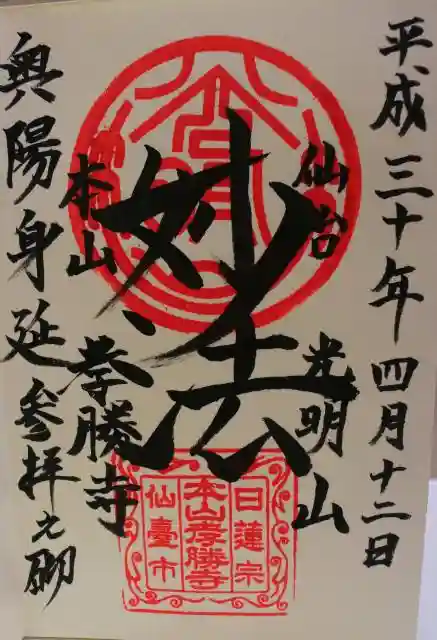 平成三十年四月十二日
仙台 光明山
妙法
本山 孝勝寺
奥陽身延参拝之砌
日蓮宗
本山孝勝寺
仙臺市